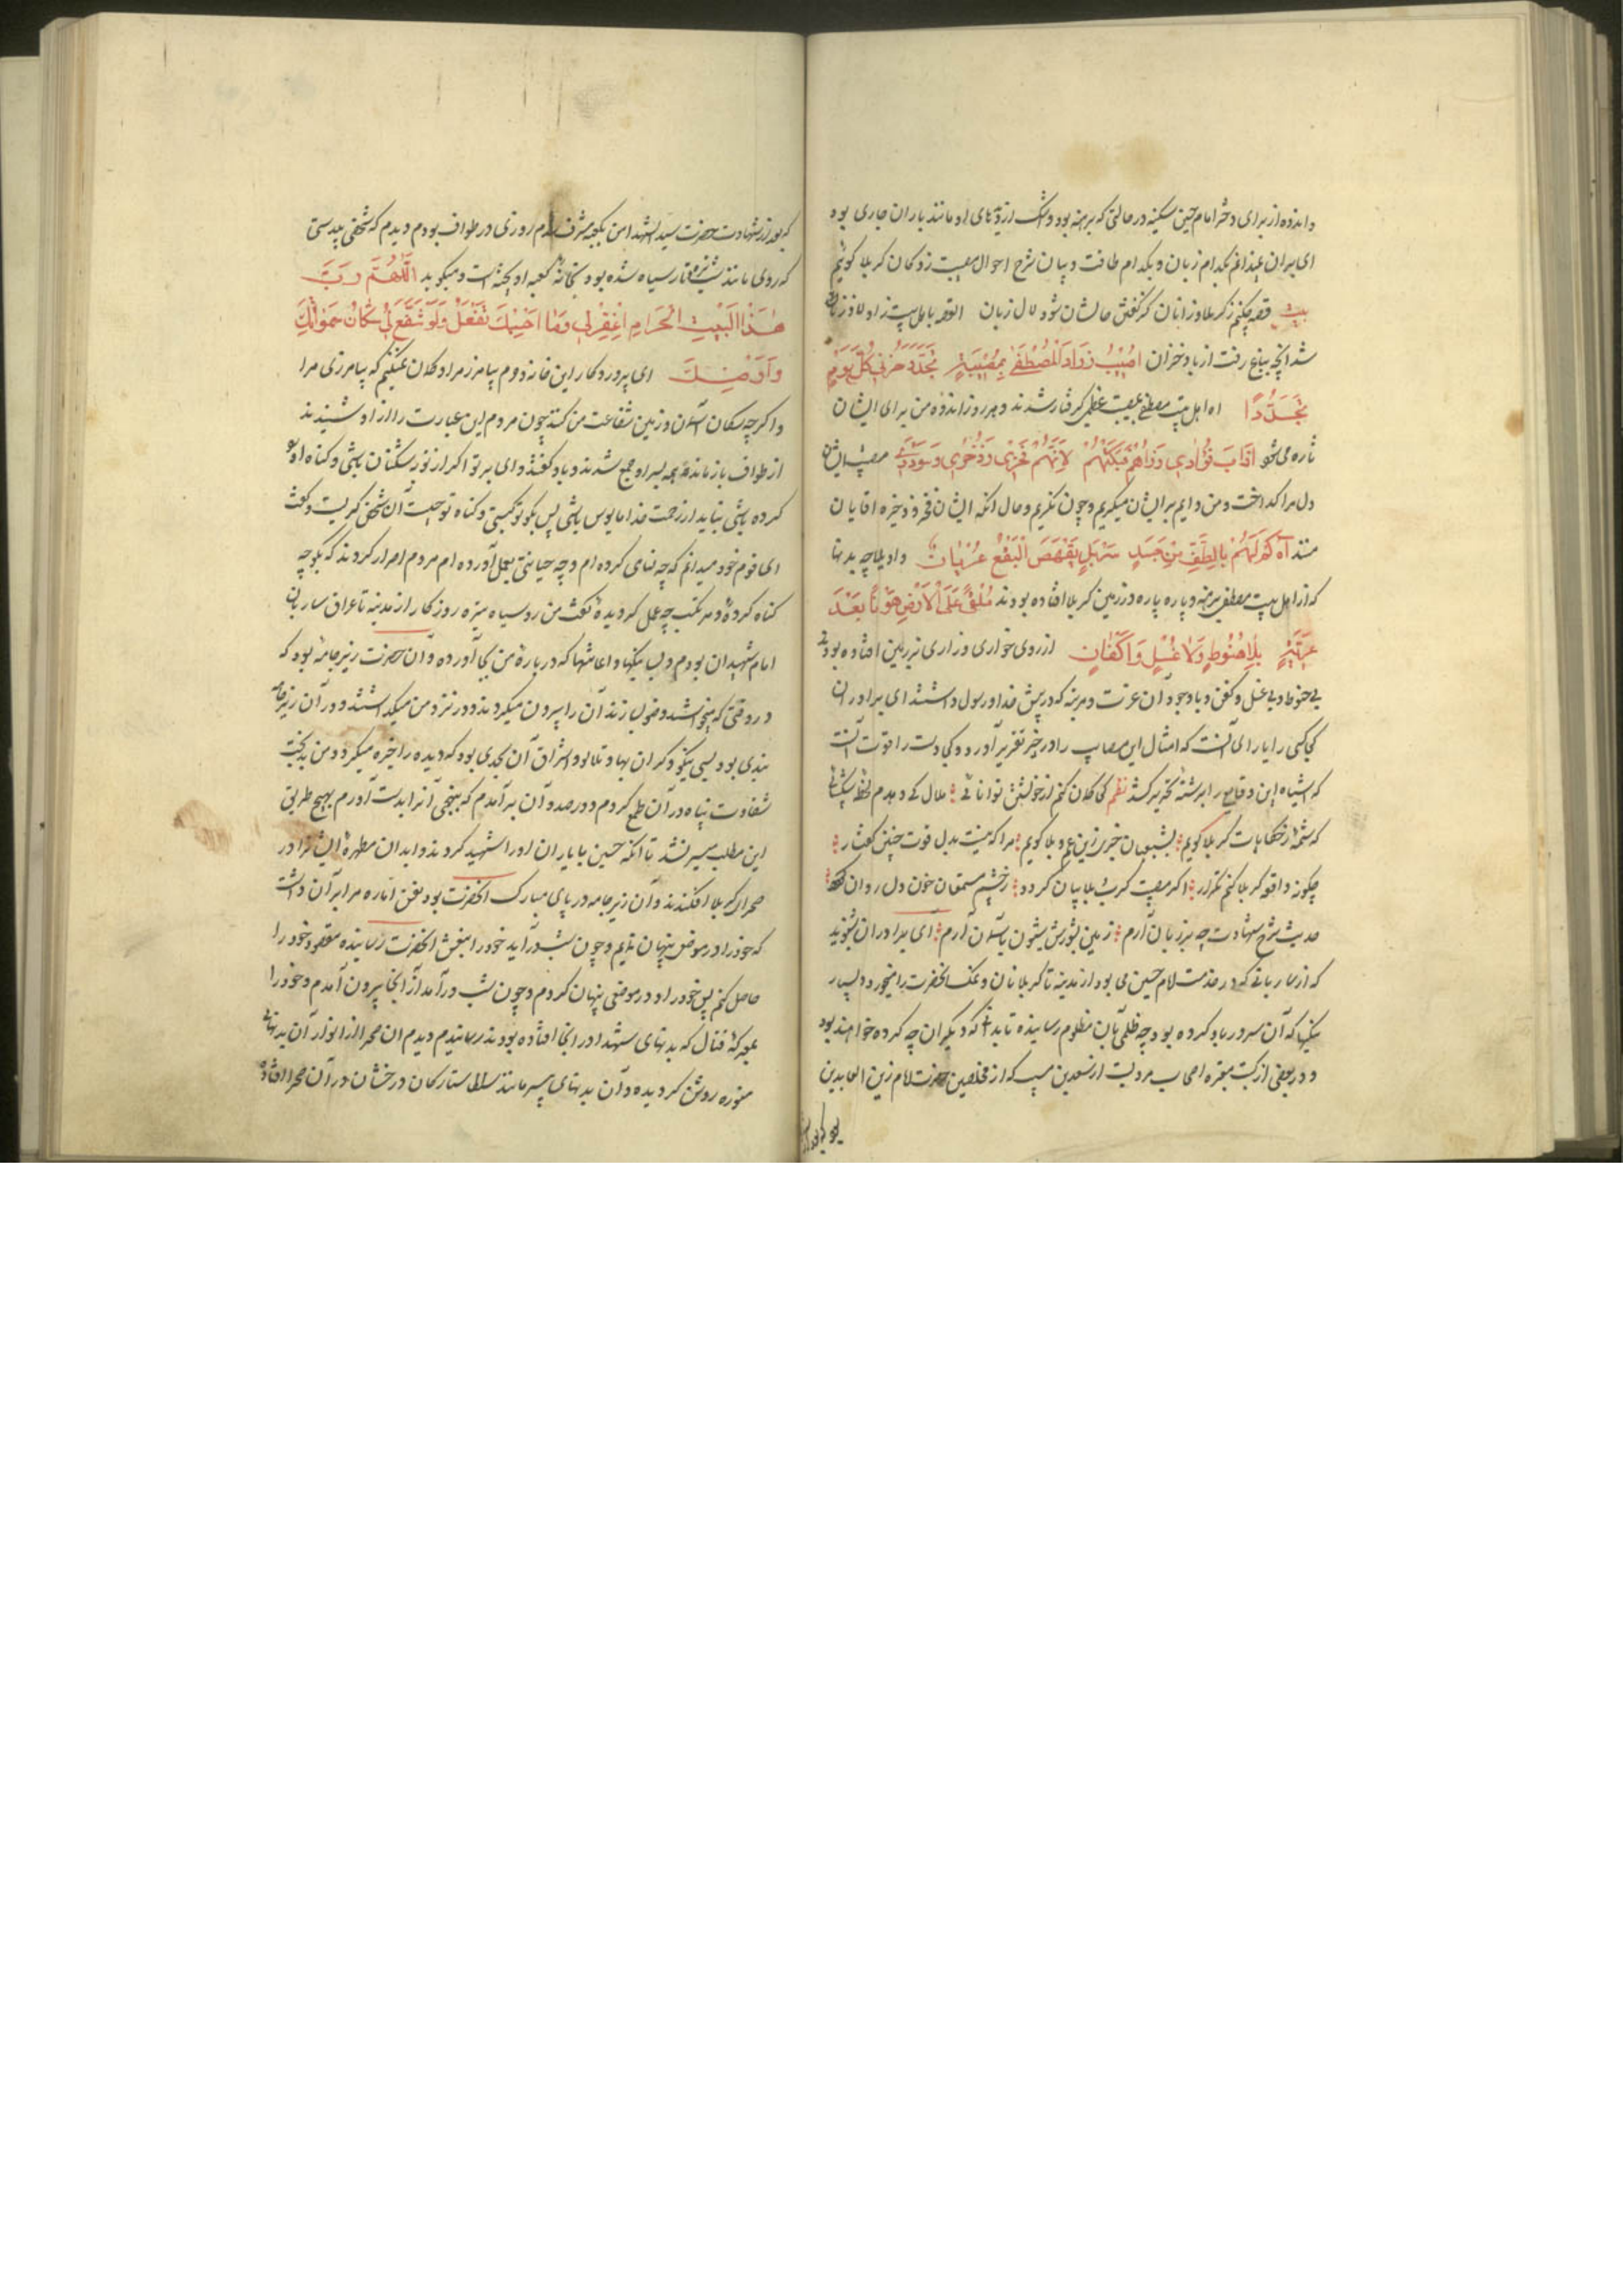 و اندوه از برای دختر امام حسین سکینه در حالتی که برهنه بود و اشک از دیدهای او مانند باران جاری بود
ای برادران نمیدانم بکدام زبان و بکدام طاقت و بیان شرح احوال مصیبت زدکان کربلا کویم
بیت قصه چکنم ز کربلا و زانان کز کفتن حالشان شود لال زبان القصه باهل بیت زاولاد زنا
شد آنچه بباغ رفت از باد خزان اُصیبُ زوادَ المُصْطَفیٰ بِمُصیبَةٍ تَجَدَّدَ حُزنی کُلَّ یَوْمٍ
تَجَدُّدًا اه اهل بیت مصطفی بمصیبت عظمی کرفتار شدند و هر روز اندوه من برای ایشان
تازه می شود اَذابَ فُؤادی رُزْاهُمْ فَبَکَیْتُهُمْ لِاَنَّهُمْ فَخْری وَ ذُخْری وَ سُودَدی مصیبت ایشان
دل مرا کداخت و من دایم بر ایشان میکریم و چون نکریم و حال آنکه ایشان فخر و ذخیره و اقایان
منند آه کَمْ لَهُمْ بِالطَّفِّ مِنْ جَسَدٍ عُرْیان واویلا چه بدنها
که از اهل بیت مصطفی برهنه و پاره پاره در زمین کربلا افتاده بودند مُلْقیً عَلَی الْاَرْضِ هَوْنًا بَعْدَ
عِزَّتِهِ بِلا حُنُوطٍ وَلا غُسْلٍ وَ اَکْفانٍ از روی خواری و زاری بر زمین افتاده بودند
بی حنوط و بی غسل و کفن و با وجود آن عزت و مرتبه که در پیش خدا و رسول داشتند ای برادران
کجا کسی را یارای آنست که امثال این مصایب را در حیّز تقریر آورد و کی دست را قوت آنست
که اشباه این وقایع را برشتهٔ تحریر کشد نظم کی کلان کنم از خویشتن توانائی ملال کی دهدم
که شمّهٔ ز حکایات کربلا کویم بشیعیان خبری زین غم و بلا کویم مرا که نیست بدل قوت چنین کفتار
چکونه واقعه کربلا کنم تکرار اکر مصیبت کرب و بلا بیان کردد ز چشم مستمعان خون دل روان کردد
حدیث شرح شهادت چه بر زبان آرم زمین بشورش و شیون بآسمان آرم ای برادران بشنوید
که از ساربانی که در خدمت امام حسین می بود از مدینه تا کربلا نان و نمک آنحضرت را میخورد و بسیار
نیکیها که آن سرور باو کرده بود چه ظلمی بآن مظلوم رسانیده تا بدانی که دیکران چه کرده خواهند بود
و در بعضی از کتب معتبره اصحاب مرویست از سعید بن مسیب که از مخلصین حضرت امام زین العابدین
که بعد از شهادت حضرت سید الشهدا من بکعبه مشرف شدم روزی در طواف بودم و دیدم که شخصی بیدستی
که روی مانند شب تار سیاه شده بود بخانه کعبه اویخته است و میکوید اَللّهُمَّ رَبَّ
هٰذَا الْبَیْتِ الْحَرامِ اغْفِرْ لی وَ ما اَحْسِبُکَ تَفْعَلْ وَ لَوْ تَشَفَّعَ لی سُکّانُ سَمٰوٰاتِکَ
وَ اَرَضیکَ ای پروردکار این خانه ذوم بیامرز مرا و کمان نمیکنم که بیامرزی مرا
و اکر چه سکان آسمان و زمین شفاعت من کنند چون مردم این عبارت را از او شنیدند
از طواف باز مانده همه بسر او جمع شدند و باو کفتند وای بر تو اکر از شیطان باشی و کناه او
کرده باشی نباید از رحمت خدا مایوس باشی پس بکو تو کیستی و کناه تو چیست آن شخص کریست و کفت
ای قوم خود میدانم که چه کناهی کرده ام و چه خیانتی بعمل آورده ام مردم اصرار کردند که بکو چه
کناه کردهٔ و مرتکب چه عمل کردیدهٔ کفت من روسیاه تیره روزکار از مدینه تا عراق ساربان
امام شهیدان بودم و بسی نیکیها و احسانها که در بارهٔ من بجا آورده و آن حضرت زیر جامهٔ بود که
در وقتی که میخواستند وضو بسازند آن را بیرون میکردند و در نزد من میکذاشتند و در آن زیر جامه
بندی بود بسی نیکو و کران بها و تلالو و اشراق آن بحدی بود که دیده را خیره میکرد و من بدبخت
شقاوت پناه در آن طمع کردم و در صدد آن برآمدم که بنحوی آنرا بدست آورم بهیچ طریق
این مطلب میسر نشد تا آنکه حسین با یاران او را شهید کردند و ابدان مطهرهٔ ایشان را در
صحرای کربلا افکندند و آن زیر جامه در پای مبارک آنحضرت بود نفس اماره مرا بر آن داشت
که خود را در موضعی پنهان نمایم و چون شب درآید خود را بنعش آنحضرت رسانیده مقصود خود را
حاصل کنم پس خود را در موضعی پنهان کردم و چون شب درآمد از آنجا بیرون آمدم و خود را
بمعرکهٔ قتال که بدنهای شهدا در آنجا افتاده بودند رسانیدم دیدم آن صحرا از انوار آن بدنهای
منوره روشن کردیده و آن بدنهای بی سر مانند ستارکان درخشان در آن صحرا افتاده